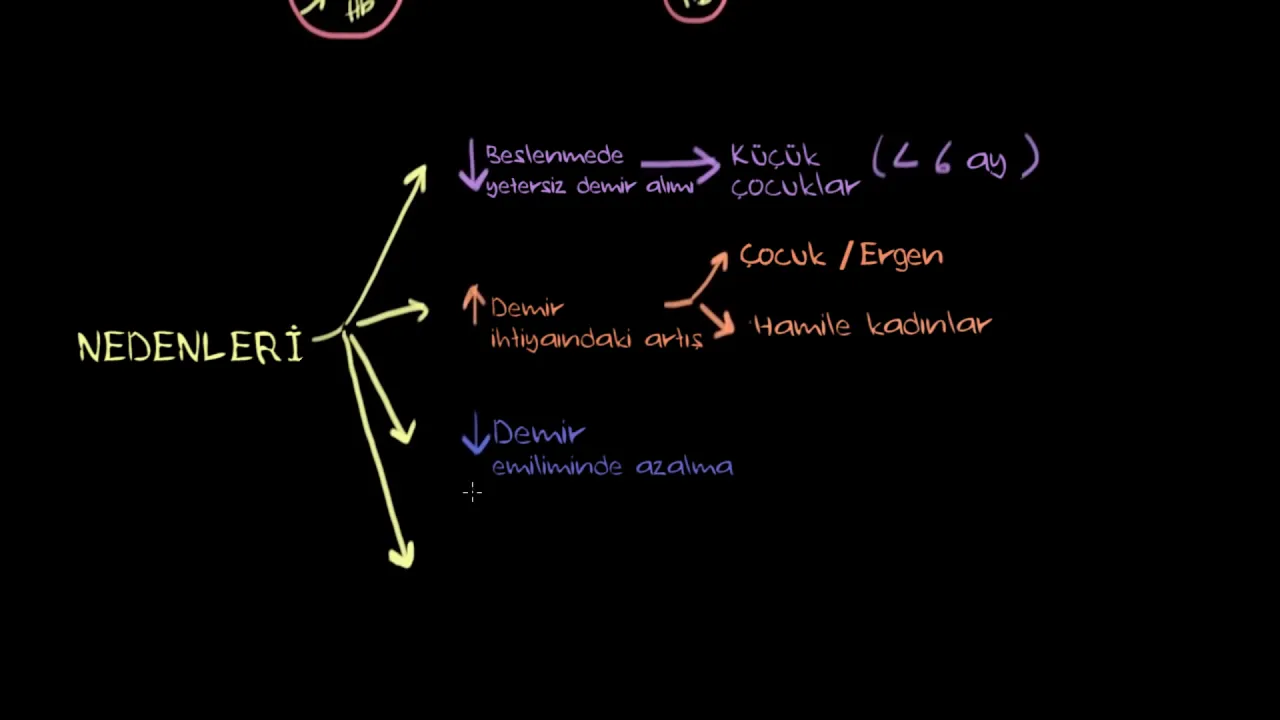 HB
NEDENLERİ
↓ Beslenmede
yetersiz demir alımı → Küçük
çocuklar (< 6 ay)
↑ Demir
ihtiyaındaki artış
Çocuk / Ergen
Hamile kadınlar
↓ Demir
emiliminde azalma